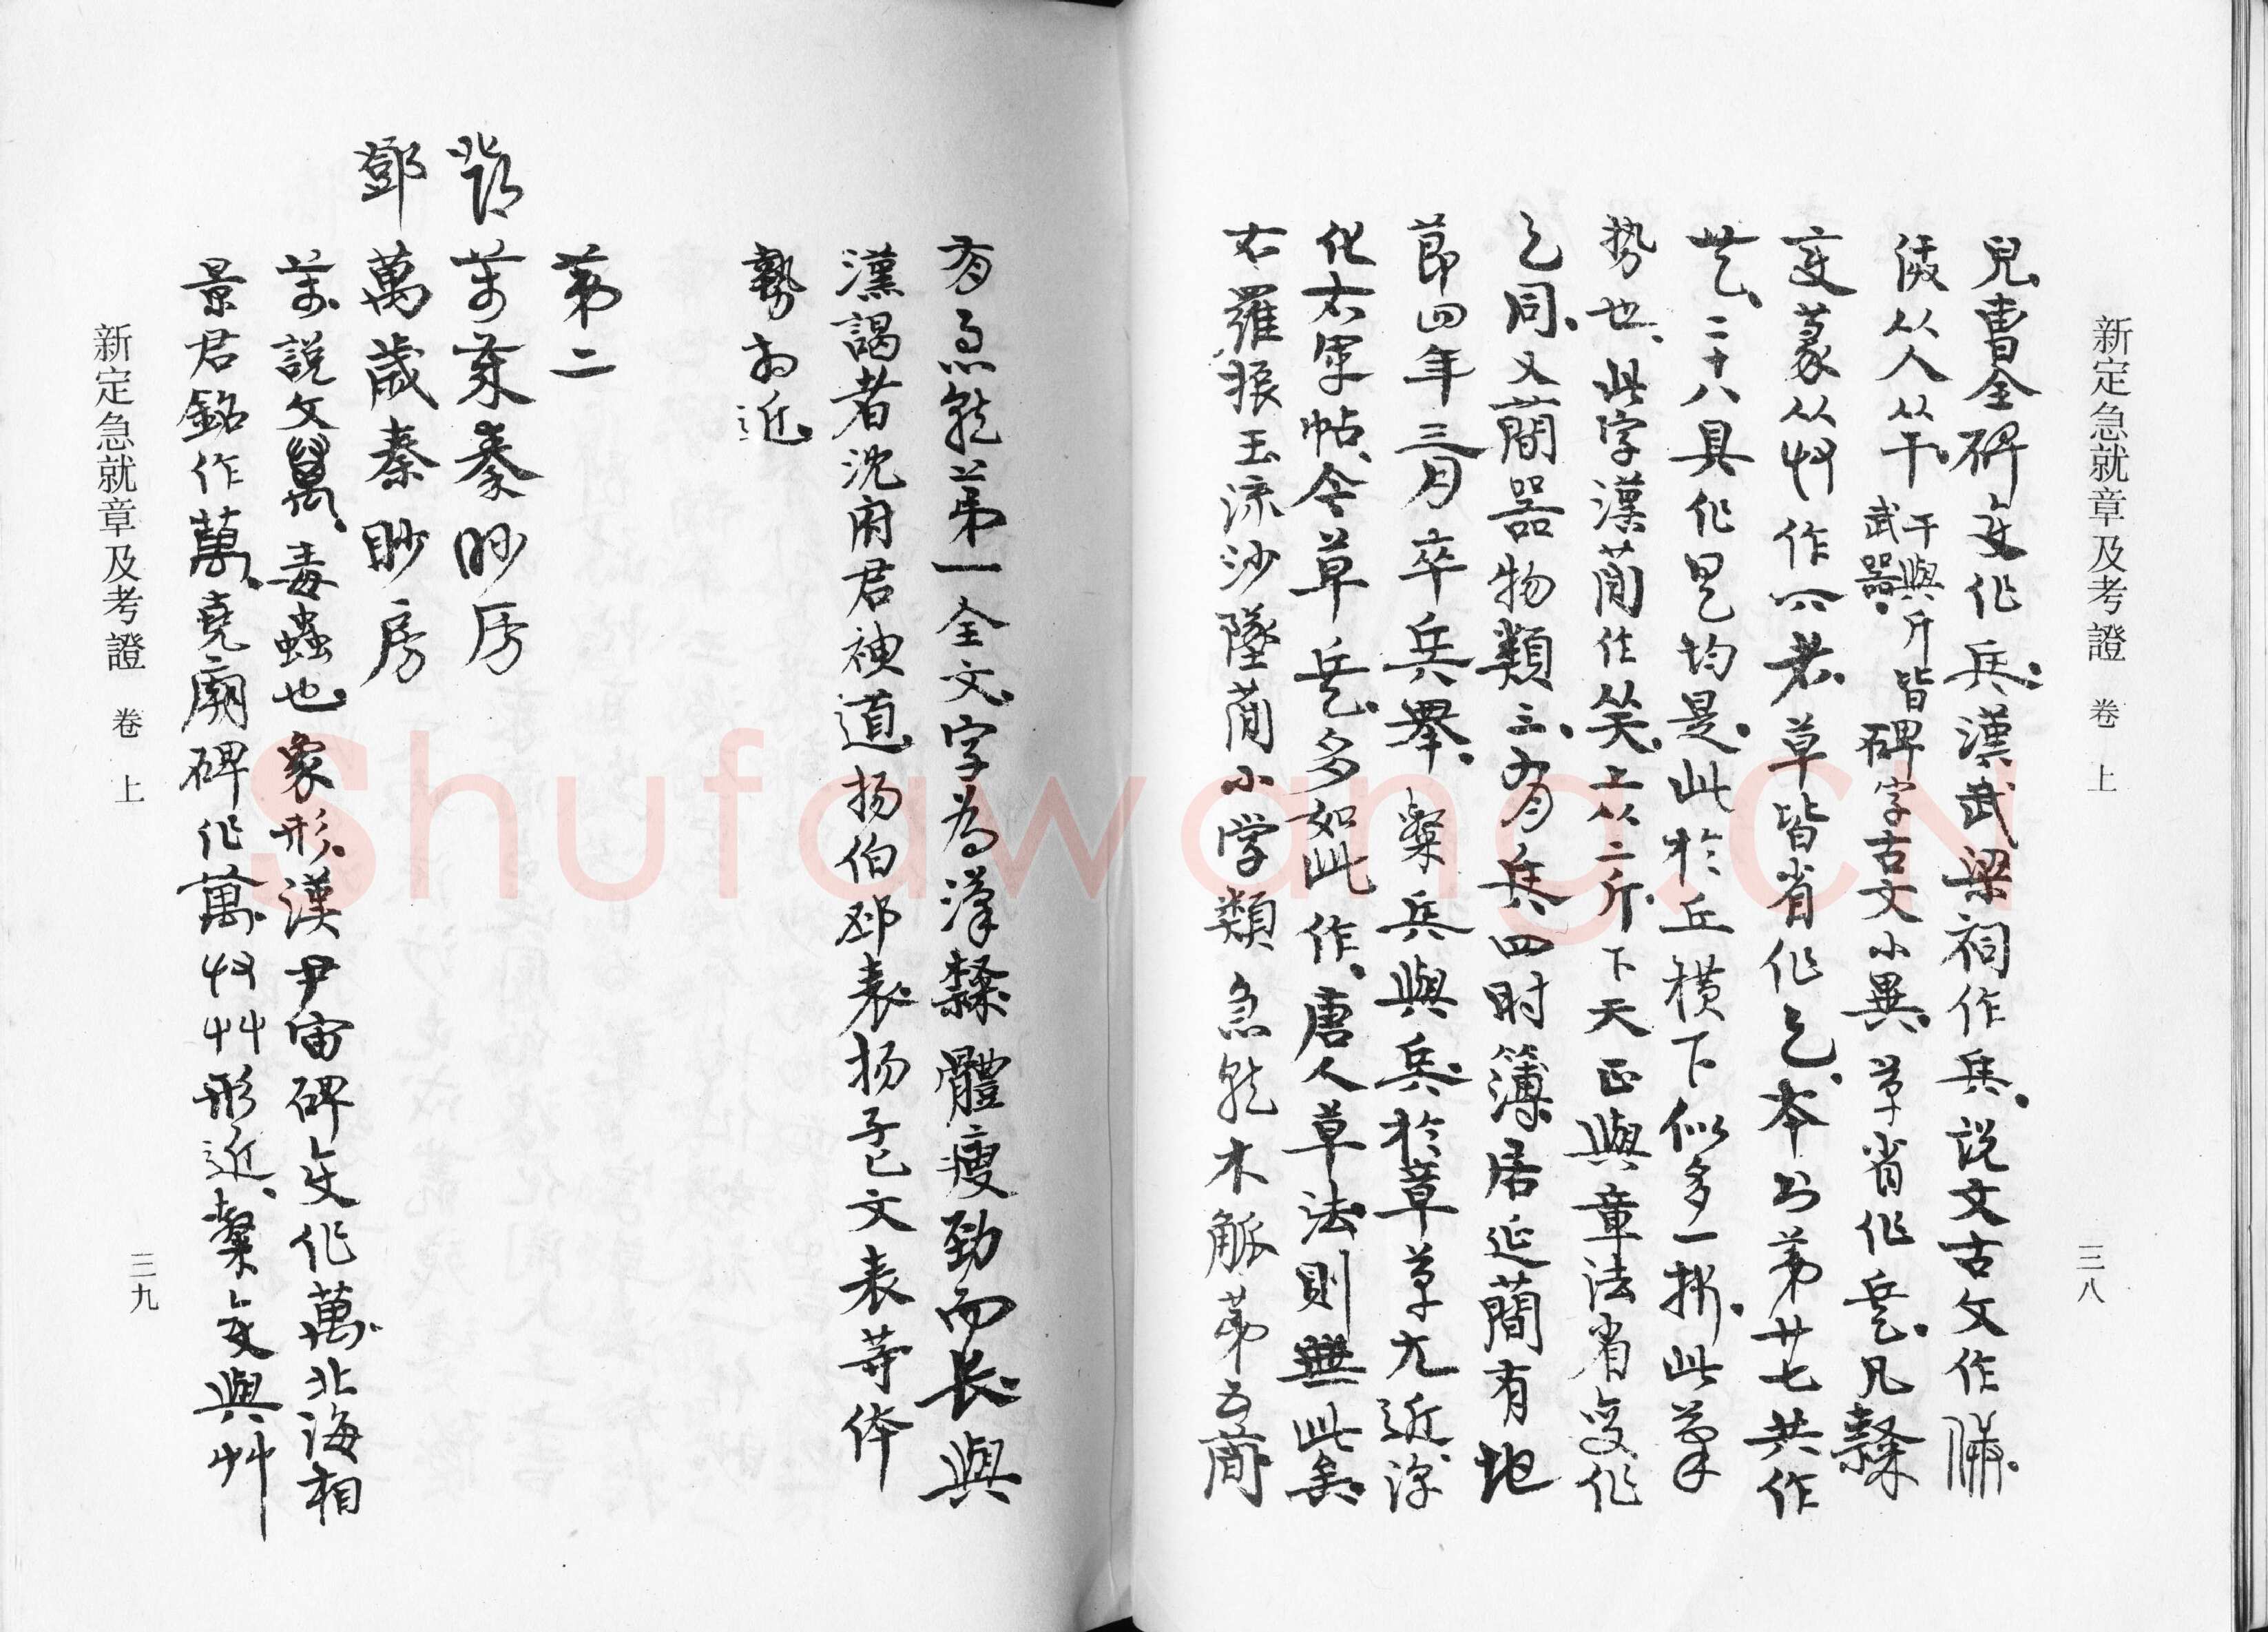 新定急就章及考證 卷上 三八
兒曹全碑文作兵漢武梁祠作兵說文古文作
从人从干干與斤皆武器碑字古文小異草省作兵凡隸
變篆从廾作六者草皆省作之本書第廿七共作
二十八具作均是此於丘橫下似多一折此筆
势也此字漢簡作笑上从二斤下天正與章法省變作
之同又簡器物類三有兵四时簿居延簡有地
節四年三月卒兵舉粲兵與兵於章草尤近淳
化右軍帖今草兵多如此作唐人草法則無此矣
右羅振玉流沙墜簡小学類急就木觚第五簡
有急就第一全文字為漢隸體瘦勁而長與
漢謁者沈府君神道扬伯邳表扬子文表等体
勢相近
第二
鄧萬歲秦眇房
鄧萬歲秦眇房
萬說文萬毒蟲也象形漢尹宙碑文作萬北海相
景君銘作萬堯廟碑作萬廾艸形近粲文與艸
新定急就章及考證 卷上 三九
Shufawang.CN